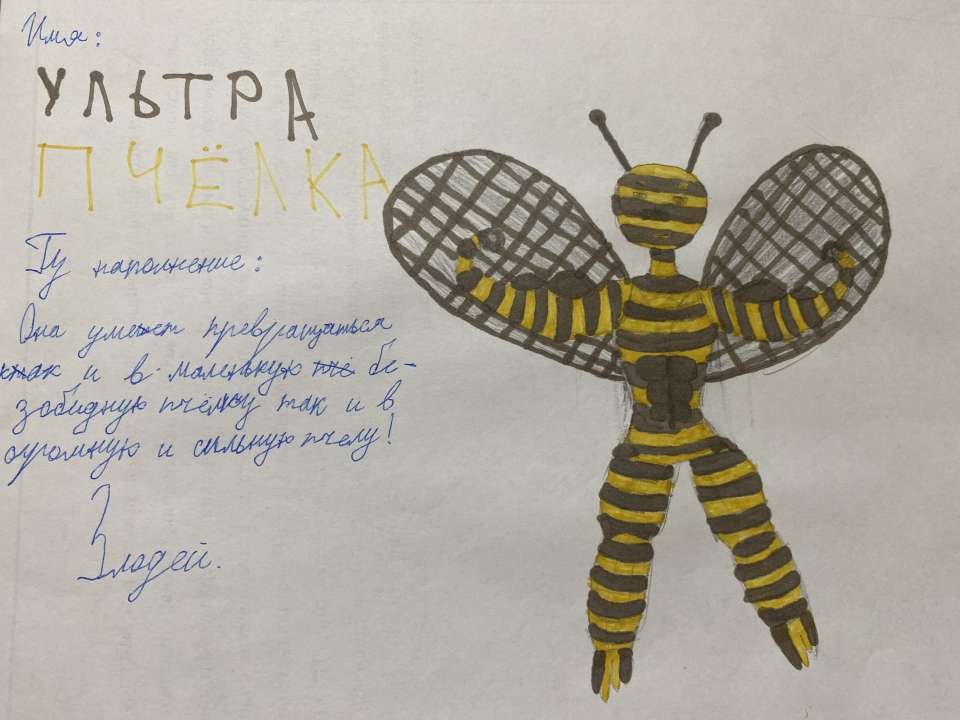 Имя:
УЛЬТРА
ПЧЁЛКА
Ту наполнение:
Она умеет превращаться
как и в маленькую бе-
зобидную пчёлку так и в
огромную и сильную пчелу!
Злодей.